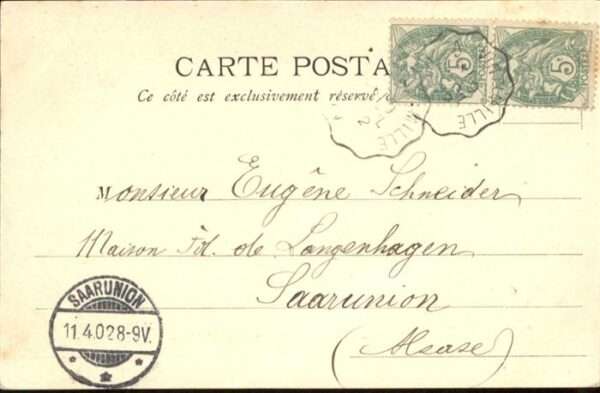 CARTE POSTA
Ce côté est exclusivement réservé
5
5
Monsieur Eugêne Schneider
Maison Fd. de Langenhagen
Saarunion
(Alsase)
SAARUNION
11.4.02 8-9V.